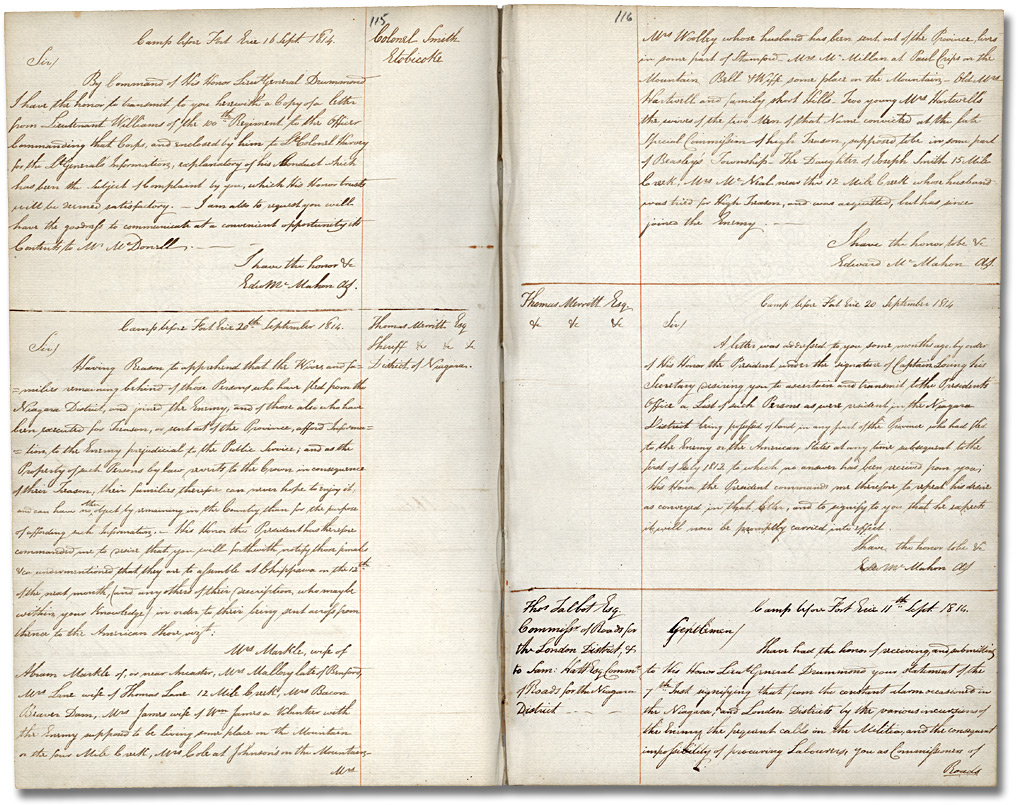 115
Camp before Fort Erie 16 Sept. 1814.
Colonel Smith
Etobicoke
Sir/
By Command of His Honor Lieut General Drummond
I have the honor to transmit to you herewith a Copy of a letter
from Lieutenant Williams of the 100th Regiment to the Officer
Commanding that Corps, and enclosed by him to Lt Colonel Harvey
for the Lt Generals Information, explanatory of his Conduct which
has been the subject of Complaint by you, which His Honor trusts
will be deemed satisfactory. — I am also to request you will
have the goodness to communicate at a convenient opportunity its
Contents to Mr McDonell. —
I have the honor &c
Edw Mc Mahon
Camp before Fort Erie 20th September 1814.
Thomas Merritt Esq
Sheriff &c &c &c
District of Niagara.
Sir/
Having Reason to apprehend that the Wives and fa-
=milies remaining behind of those Persons who have fled from the
Niagara District, and joined the Enemy, and of those also who have
been executed for Treason, or sent out of the Province, afford Informa-
=tion to the Enemy prejudicial to the Public Service; and as the
Property of such Persons by law reverts to the Crown in consequence
of their Treason, their families therefore can never hope to enjoy it,
and can have no other object by remaining in the Country than for the purpose
of affording such Information. — His Honor the President has therefore
commanded me to desire that you will forthwith notify those
&c undermentioned that they are to assemble at Chippawa on the 12th
of the next month, (and any others of their description, who may be
within your knowledge) in order to their being sent across from
thence to the American Shore, vizt:
Mrs Markle, wife of
Abram Markle of, or near Ancaster, Mrs Mallory late of Burford,
Mrs Lane wife of Thomas Lane 12 Mile Creek, Mrs Bacon
Beaver Dam, Mrs James wife of Wm James a Volunteer with
the Enemy supposed to be living some place on the Mountain
or the four Mile Creek, Mrs Cole at Johnson's on the Mountain,
Mrs
116
Mrs Woolley whose husband has been sent out of the Province, lives
in some part of Stamford. Mrs McMillan at Paul Crips on the
Mountain Bell & Wife some place on the Mountain — Old Mrs
Hartwell and family short Hills. Two young Mrs Hartwells
the wives of the two Men of that Name convicted at the late
Special Commission of high Treason, supposed to be in some part
of Beasley's Township. The Daughter of Joseph Smith 15 Mile
Creek, Mrs McNeal near the 12 Mile Creek whose husband
was tried for High Treason, and was acquitted, but has since
joined the Enemy. —
I have the honor to be &c
Edward Mc Mahon
Thomas Merritt Esq
&c &c &c
Camp before Fort Erie 20 September 1814
Sir/
A letter was addressed to you some months ago, by order
of His Honor the President under the signature of Captain Loring his
Secretary desiring you to ascertain and transmit to the Presidents
Office a List of such Persons as were resident in the Niagara
District being possessed of land in any part of the Province who had fled
to the Enemy or the American States at any time subsequent to the
first of July 1812 to which no answer has been received from you;
His Honor the President commands me therefore to repeat his desire
as conveyed in that letter, and to signify to you that he expects
it will now be promptly carried into effect.
I have the honor to be &c
Edw Mc Mahon
Thos Talbot Esq
Commissr of Roads for
the London District, &
to Saml Hatt Esq Commr
of Roads for the Niagara
District —
Camp before Fort Erie 11th Sept. 1814.
Gentlemen/
I have had the honor of receiving, and submitting
to His Honor Lieut General Drummond your statement of the
7th Inst signifying that from the constant alarm occasioned in
the Niagara, and London Districts by the various incursions of
the Enemy, the frequent calls on the Militia, and the consequent
impossibility of procuring Labourers, you as Commissioners of
Roads